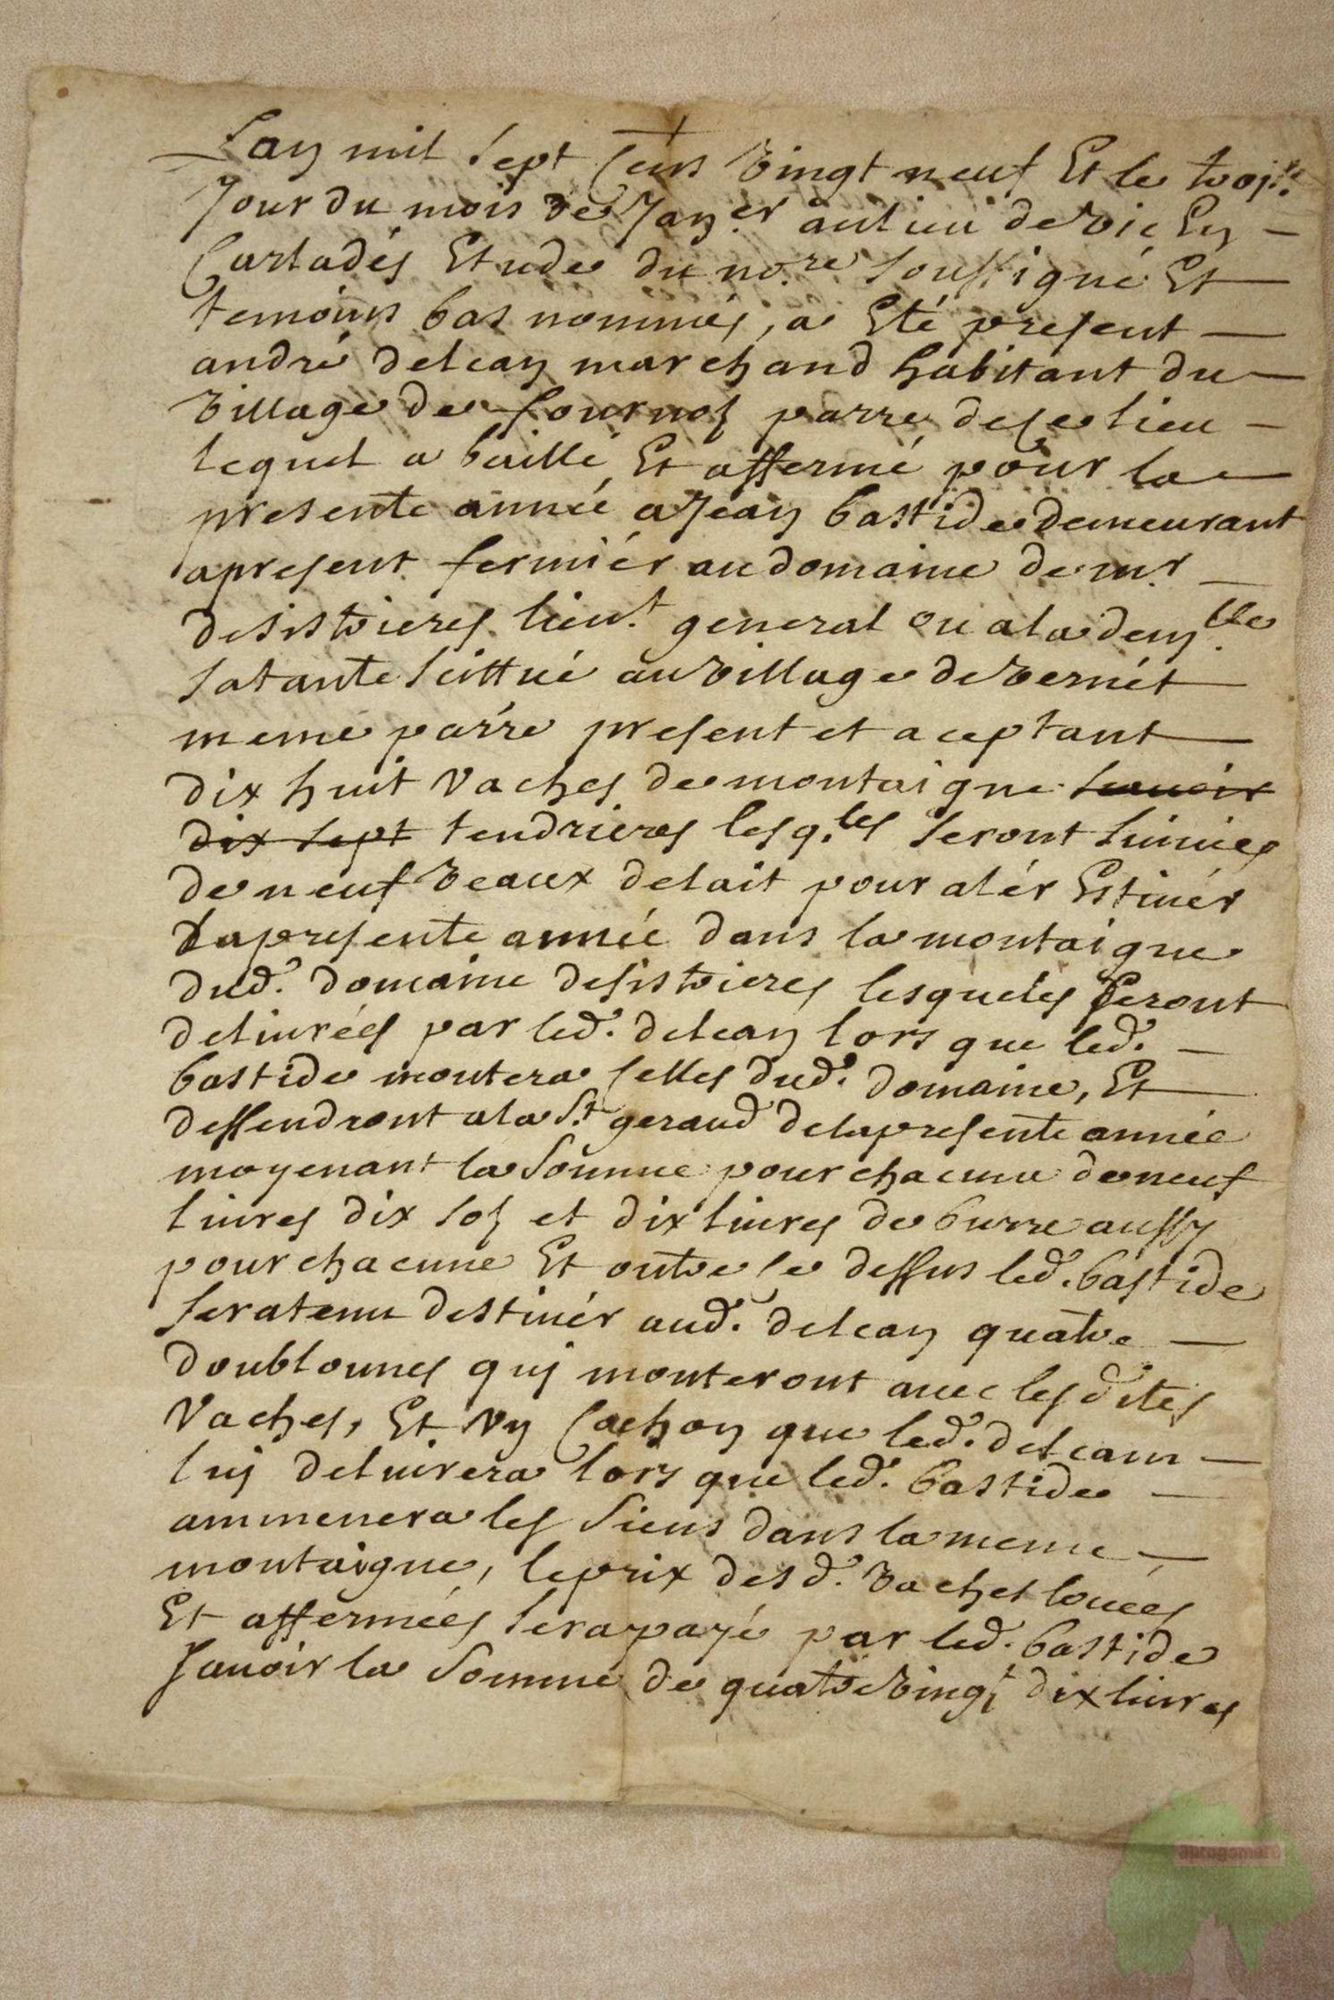 Lan mil sept cens vingt neuf Et le trois.e
Jour du mois de Janv.er au lieu de vic En
Carladés Etude du no.re soussigné Et
temoins bas nommés, a Eté present
andré delcan marchand habitant du
village de fournols parre de ce lieu
lequel a baillé Et affermé pour la
presente année a Jean bastide demeurant
apresent fermiér au domaine de mr
desistrieres lieu.t general ou a la dem.lle
sa tante scittué au village de vernét
meme parre present et aceptant
dix huit vaches de montaigne scavoir
dix sept tendrieres lesq.les seront suivies
de neuf veaux de lait pour alér Estivér
la presente année dans la montaigne
dud. domaine desistrieres lesqueles seront
delivrées par led. delcan lors que led.
bastide montera celles dud. domaine, Et
dessendront a la S.t geraud de la presente année
moyenant la somme pour chacune de neuf
livres dix sols et dix livres de burre aussy
pour chacune Et outre ce dessus led. bastide
sera tenu destivér aud. delcan quatre
doublounes quj monteront avec les dites
vaches, Et vn cochon que led. delcan
luj delivrera lors que led. bastide
ammenera les siens dans la meme
montaigne, le prix desd. vaches louées
Et affermées sera payé par led. bastide
scavoir la somme de quatre vingt dix livres
aprogemere